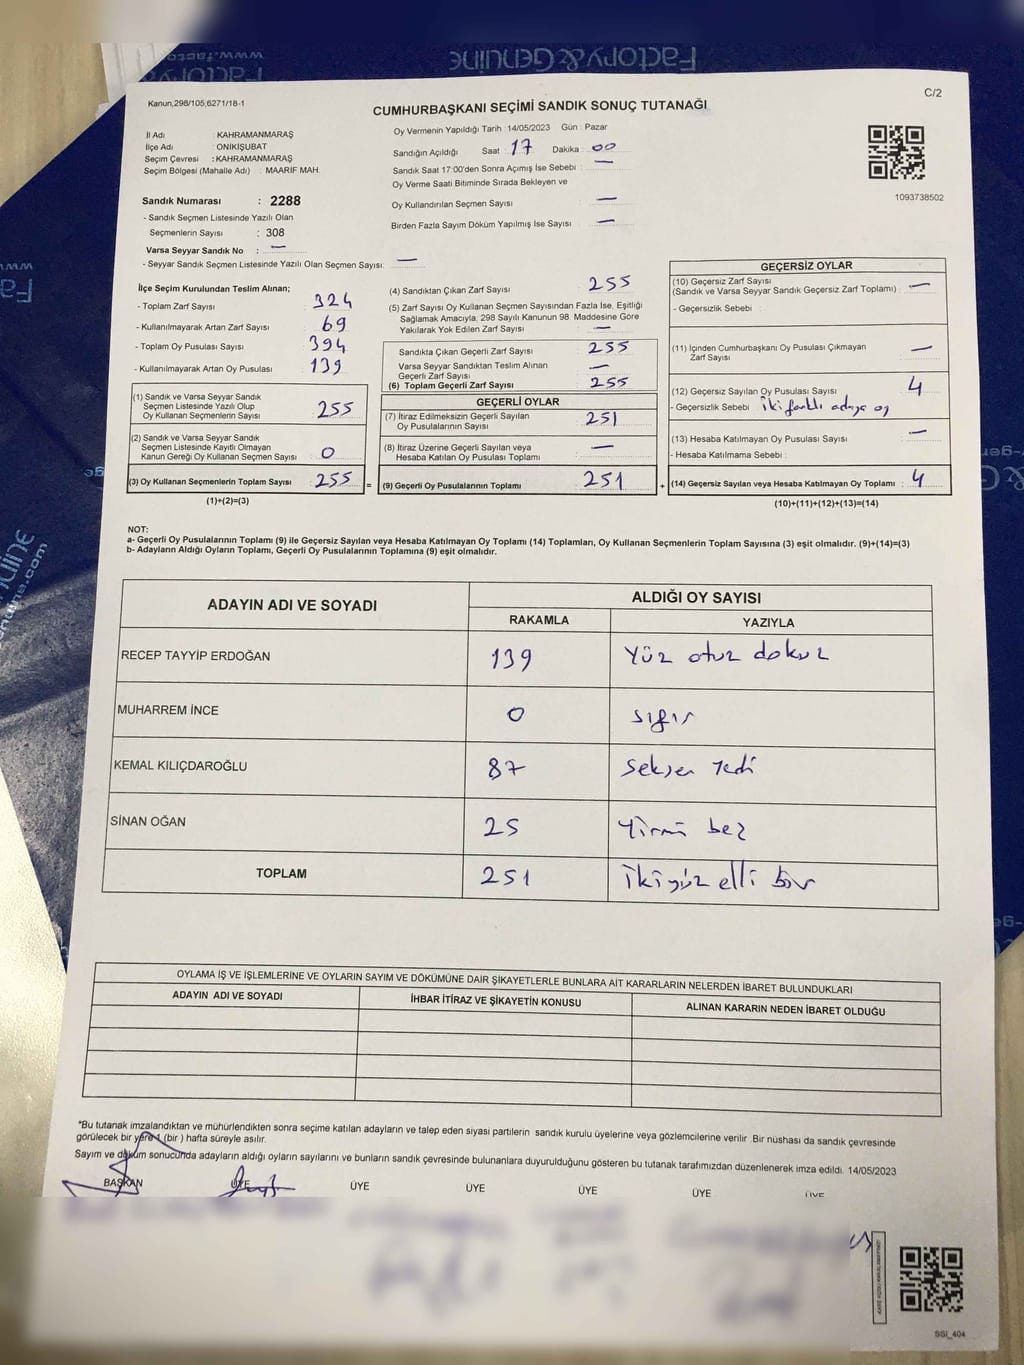 Factory&Genuine
www.facto
Factory
www
Kanun,298/105,6271/18-1
C/2
CUMHURBAŞKANI SEÇİMİ SANDIK SONUÇ TUTANAĞI
İl Adı : KAHRAMANMARAŞ
İlçe Adı : ONİKİŞUBAT
Seçim Çevresi : KAHRAMANMARAŞ
Seçim Bölgesi (Mahalle Adı) : MAARİF MAH.
Oy Vermenin Yapıldığı Tarih : 14/05/2023 Gün : Pazar
Sandığın Açıldığı Saat : 17 Dakika : 00
Sandık Saat 17:00'den Sonra Açımış İse Sebebi : —
Oy Verme Saati Bitiminde Sırada Bekleyen ve
Oy Kullandırılan Seçmen Sayısı : —
Birden Fazla Sayım Döküm Yapılmış İse Sayısı : —
1093738502
Sandık Numarası : 2288
- Sandık Seçmen Listesinde Yazılı Olan
Seçmenlerin Sayısı : 308
Varsa Seyyar Sandık No : —
- Seyyar Sandık Seçmen Listesinde Yazılı Olan Seçmen Sayısı: —
İlçe Seçim Kurulundan Teslim Alınan;
- Toplam Zarf Sayısı 324
- Kullanılmayarak Artan Zarf Sayısı 69
- Toplam Oy Pusulası Sayısı 394
- Kullanılmayarak Artan Oy Pusulası 139
(1) Sandık ve Varsa Seyyar Sandık
Seçmen Listesinde Yazılı Olup
Oy Kullanan Seçmenlerin Sayısı 255
(2) Sandık ve Varsa Seyyar Sandık
Seçmen Listesinde Kayıtlı Olmayan
Kanun Gereği Oy Kullanan Seçmen Sayısı 0
(3) Oy Kullanan Seçmenlerin Toplam Sayısı 255 =
(1)+(2)=(3)
(4) Sandıktan Çıkan Zarf Sayısı 255
(5) Zarf Sayısı Oy Kullanan Seçmen Sayısından Fazla İse, Eşitliği
Sağlamak Amacıyla, 298 Sayılı Kanunun 98. Maddesine Göre
Yakılarak Yok Edilen Zarf Sayısı —
Sandıkta Çıkan Geçerli Zarf Sayısı 255
Varsa Seyyar Sandıktan Teslim Alınan
Geçerli Zarf Sayısı —
(6) Toplam Geçerli Zarf Sayısı 255
GEÇERLİ OYLAR
(7) İtiraz Edilmeksizin Geçerli Sayılan
Oy Pusulalarının Sayısı 251
(8) İtiraz Üzerine Geçerli Sayılan veya
Hesaba Katılan Oy Pusulası Toplamı —
(9) Geçerli Oy Pusulalarının Toplamı 251 +
GEÇERSİZ OYLAR
(10) Geçersiz Zarf Sayısı
(Sandık ve Varsa Seyyar Sandık Geçersiz Zarf Toplamı) : —
- Geçersizlik Sebebi :
(11) İçinden Cumhurbaşkanı Oy Pusulası Çıkmayan
Zarf Sayısı —
(12) Geçersiz Sayılan Oy Pusulası Sayısı 4
- Geçersizlik Sebebi : iki farklı adaya oy
(13) Hesaba Katılmayan Oy Pusulası Sayısı : —
- Hesaba Katılmama Sebebi :
(14) Geçersiz Sayılan veya Hesaba Katılmayan Oy Toplamı : 4
(10)+(11)+(12)+(13)=(14)
NOT:
a- Geçerli Oy Pusulalarının Toplamı (9) ile Geçersiz Sayılan veya Hesaba Katılmayan Oy Toplamı (14) Toplamları, Oy Kullanan Seçmenlerin Toplam Sayısına (3) eşit olmalıdır. (9)+(14)=(3)
b- Adayların Aldığı Oyların Toplamı, Geçerli Oy Pusulalarının Toplamına (9) eşit olmalıdır.
ADAYIN ADI VE SOYADI ALDIĞI OY SAYISI
RAKAMLA YAZIYLA
RECEP TAYYİP ERDOĞAN 139 Yüz otuz dokuz
MUHARREM İNCE 0 sıfır
KEMAL KILIÇDAROĞLU 87 Seksen Yedi
SİNAN OĞAN 25 Yirmi beş
TOPLAM 251 ikiyüz elli bir
OYLAMA İŞ VE İŞLEMLERİNE VE OYLARIN SAYIM VE DÖKÜMÜNE DAİR ŞİKAYETLERLE BUNLARA AİT KARARLARIN NELERDEN İBARET BULUNDUKLARI
ADAYIN ADI VE SOYADI İHBAR İTİRAZ VE ŞİKAYETİN KONUSU ALINAN KARARIN NEDEN İBARET OLDUĞU
*Bu tutanak imzalandıktan ve mühürlendikten sonra seçime katılan adayların ve talep eden siyasi partilerin sandık kurulu üyelerine veya gözlemcilerine verilir. Bir nüshası da sandık çevresinde
görülecek bir yere 1 (bir ) hafta süreyle asılır.
Sayım ve döküm sonucunda adayların aldığı oyların sayılarını ve bunların sandık çevresinde bulunanlara duyurulduğunu gösteren bu tutanak tarafımızdan düzenlenerek imza edildi. 14/05/2023
BAŞKAN ÜYE ÜYE ÜYE ÜYE ÜYE ÜYE
SSI_404